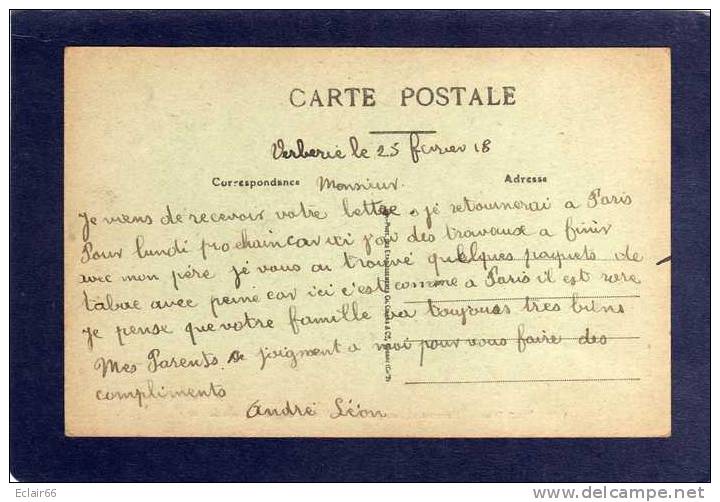 CARTE POSTALE
Verberie le 25 fevrier 18
Correspondance Monsieur. Adresse
Je viens de recevoir votre lettre, je retournerai a Paris
Pour lundi prochain car ici j'ai des travaux a finir
avec mon père je vous ai trouvé quelques paquets de
tabac avec peine car ici c'est comme a Paris il est rare
Je pense que votre famille va toujours tres biens
Mes Parents se joignent a moi pour vous faire des
compliments
André Léon
Eclair66
www.delcampe.net